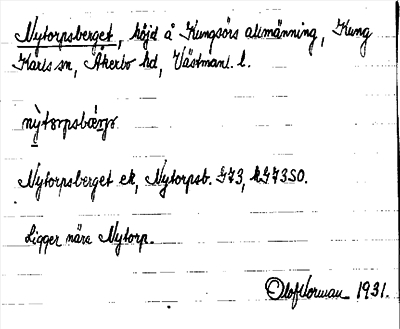 Nytorpsberget, höjd å Kungsörs allmänning, Kung
Karls sn, Åkerbo hd, Västmanl. l.
nỳtorpsbærjə
Nytorpsberget ek, Nytorpsb. G73, hG73SO.
Ligger nära Nytorp.
Olof Norman 1931.